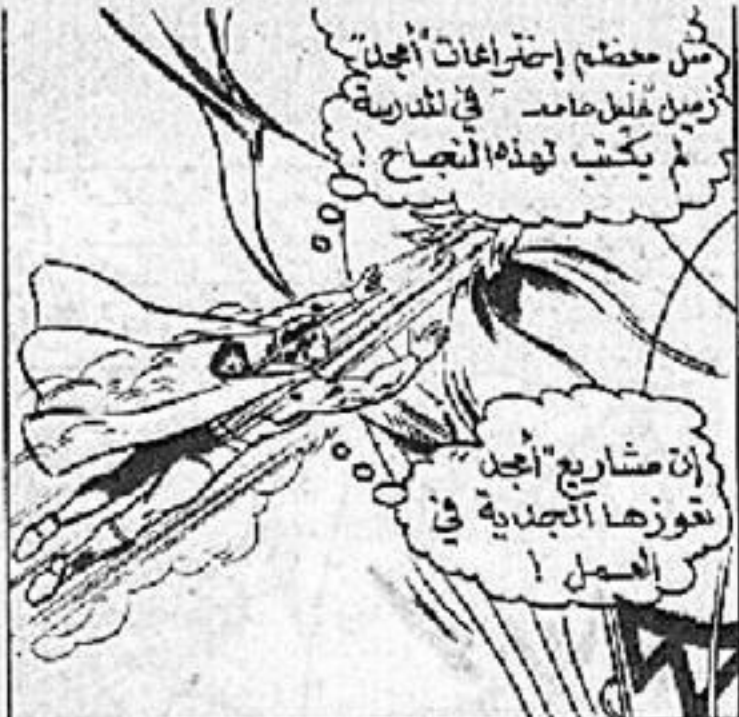 مثل معظم إختراعات "أمجد"
زميل خليل حامد - في المدرسة
لم يكتب لهذه النجاح !
إن مشاريع "أمجد"
تعوزها الجدية في
العمل !